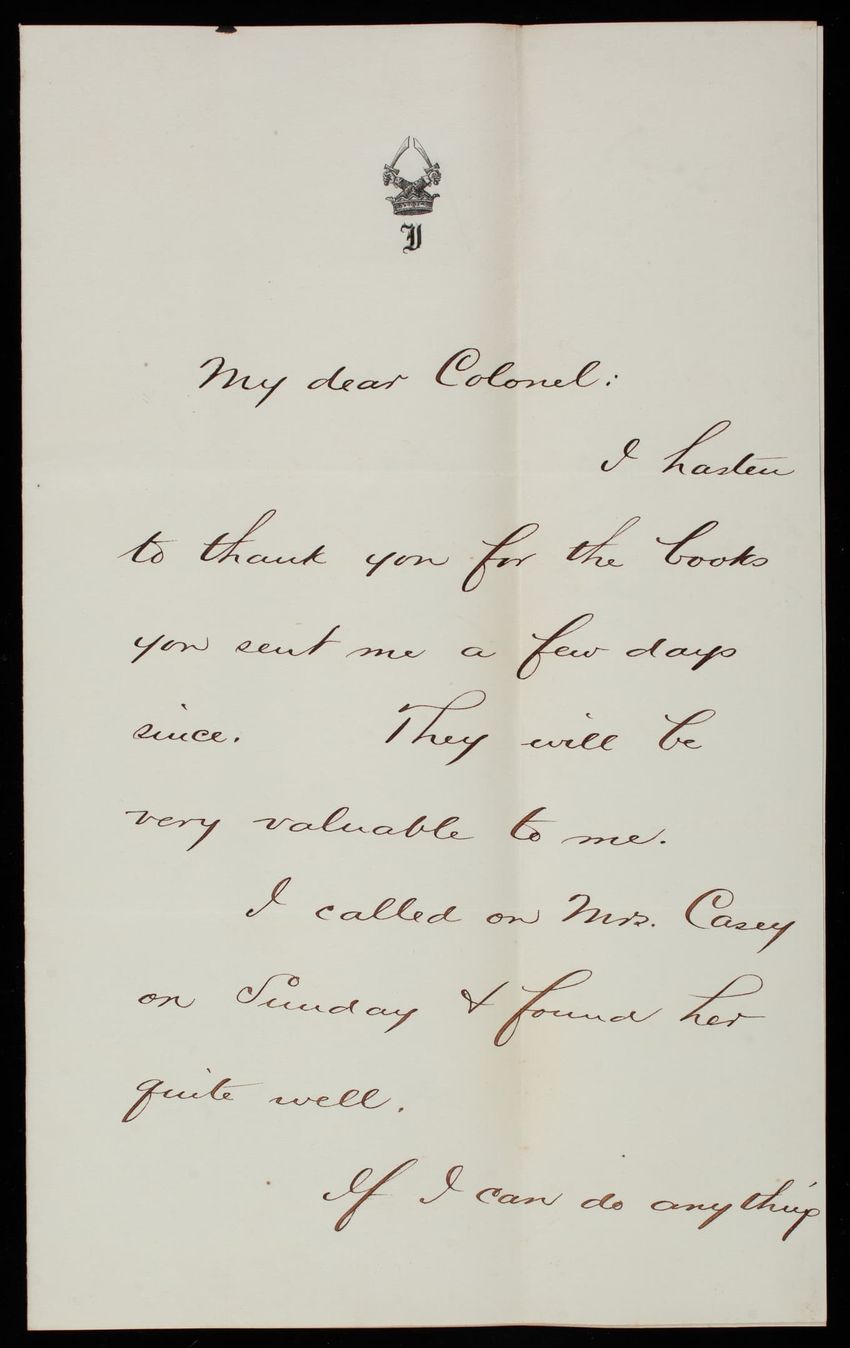 My dear Colonel:
I hasten
to thank you for the books
you sent me a few days
since. They will be
very valuable to me.
I called on Mrs. Casey
on Sunday & found her
quite well.
If I can do anything